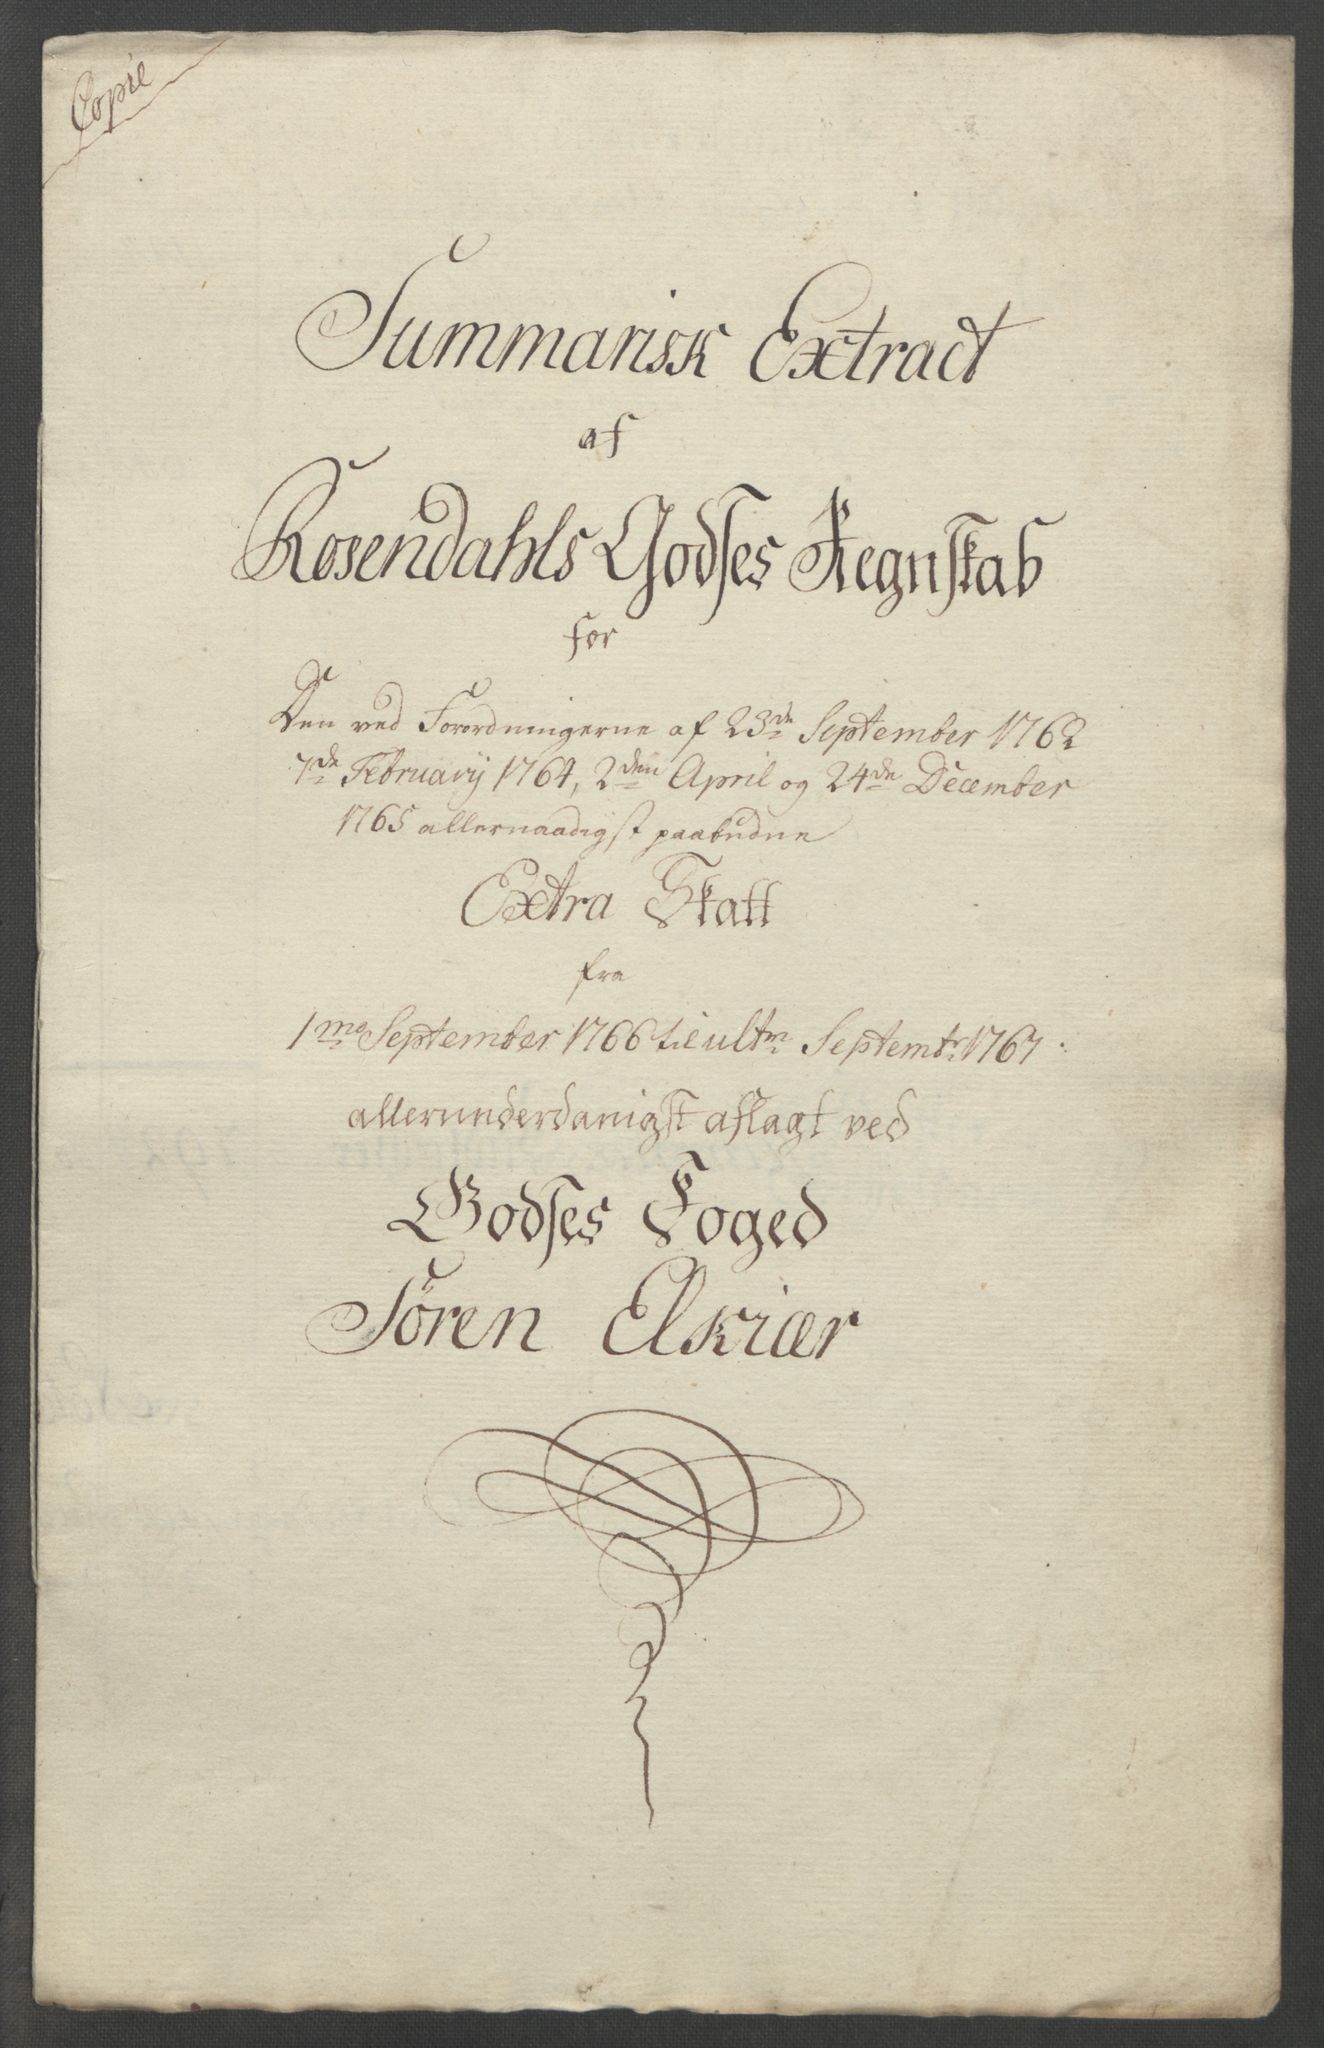 Copie
Summarisk Extract
af
Rosendahls Godses Regnskab
for
Den ved Forordningerne af 23de September 1762
7de February 1764, 2den April og 24de December
1765 allernaadigst paabudne
Extra Skatt
fra
1mo September 1766 til ultm Septembr 1767.
allerunderdanigst aflagt ved
Godses Foged
Sören Elkiær